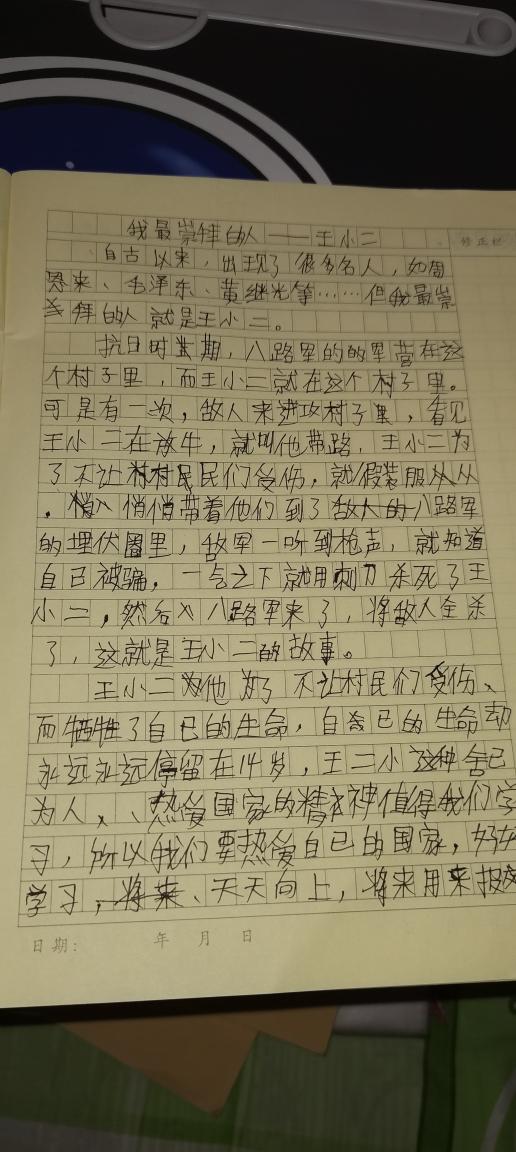 我最崇拜的人——王小二
修正栏
自古以来，出现了很多名人，如周
恩来、毛泽东、黄继光等……但我最崇
拜的人就是王小二。
抗日时期，八路军的的军营在这
个村子里，而王小二就在这个村子里。
可是有一次，敌人来进攻村子里，看见
王小二在放牛，就叫他带路，王小二为
了不让村村民民们受伤，就假装服从从
。悄悄带着他们到了敌人的八路军
的埋伏圈里，敌军一听到枪声，就知道
自己被骗，一气之下就用刺刀杀死了王
小二，然后八路军来了，将敌人全杀
了，这就是王小二的故事。
王小二为他为了不让村民们受伤、
而牺牲了自己的生命，自己的生命
永远永远停留在14岁，王二小这种舍己
为人、热爱国家的精神值得我们学
习，所以我们要热爱自己的国家，好好
学习，将来、天天向上，将来用来报效
日期： 年 月 日